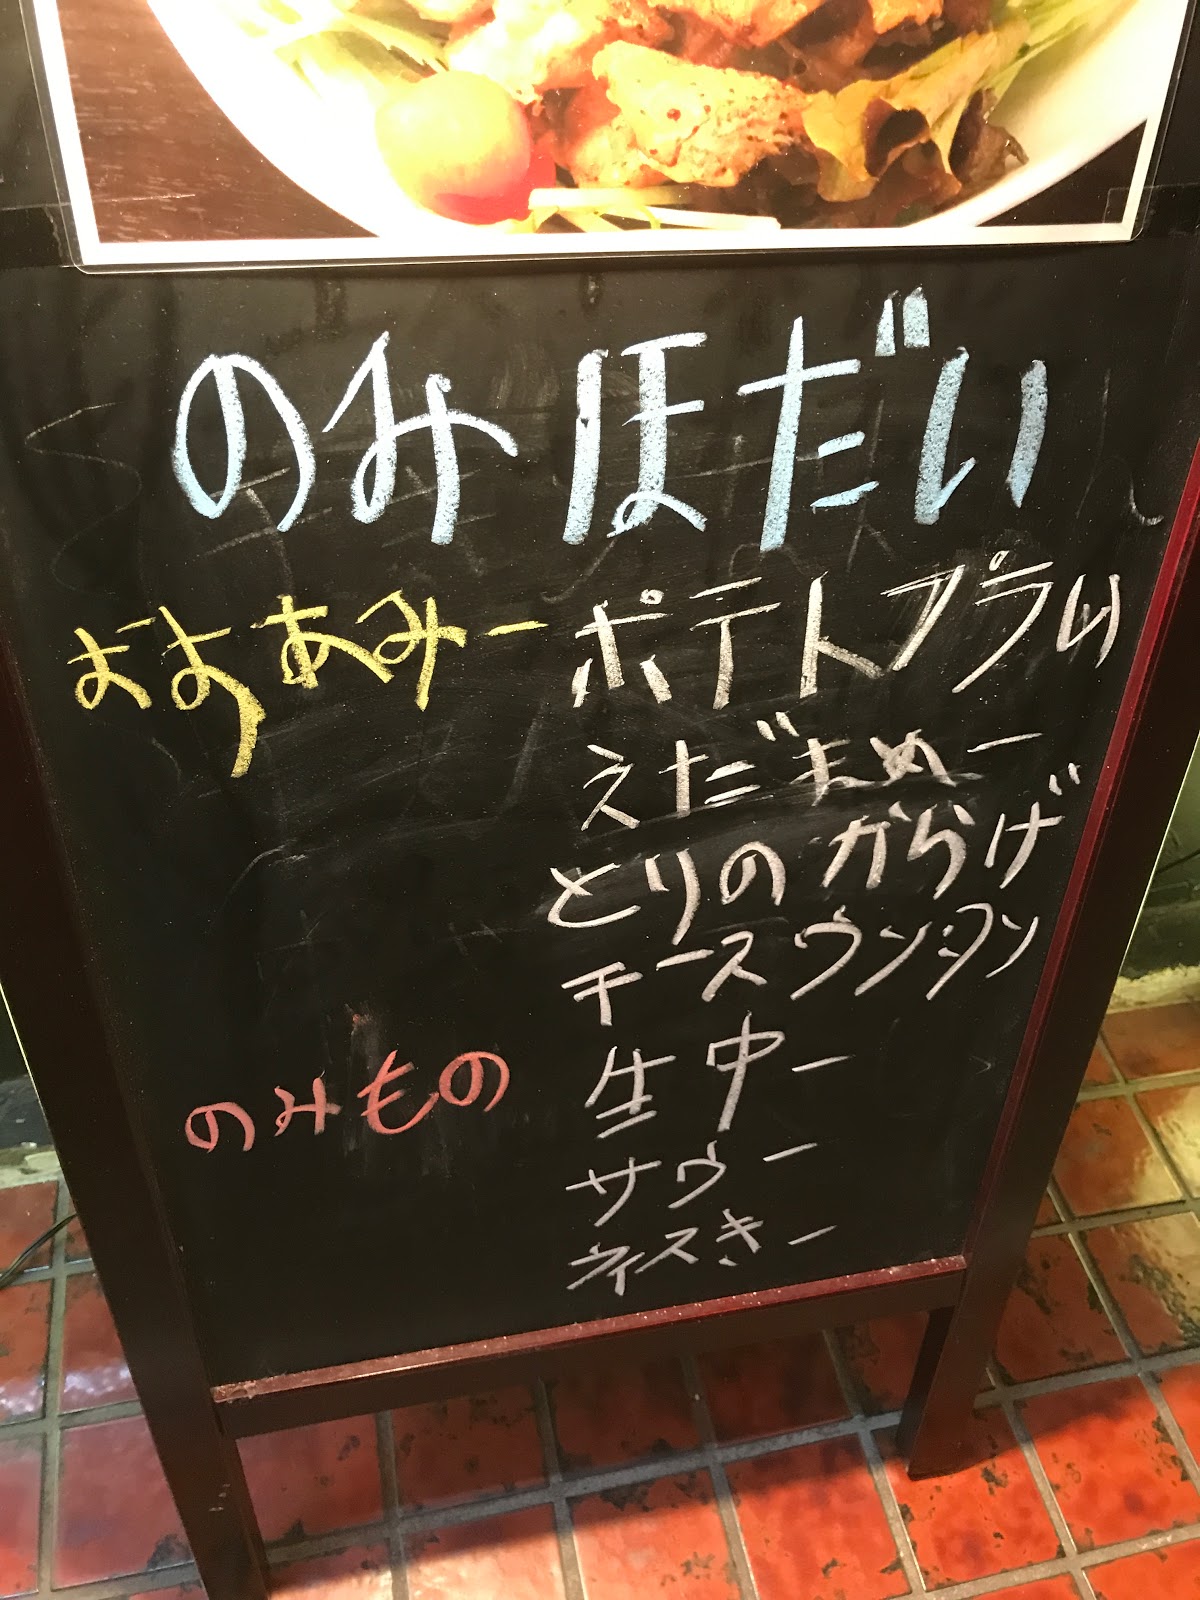 のみほだい
おすあみー ポテトフラリ
えだまめー
とりのがらげ
チースウンタン
のみもの 生中ー
サワー
ウイスきー